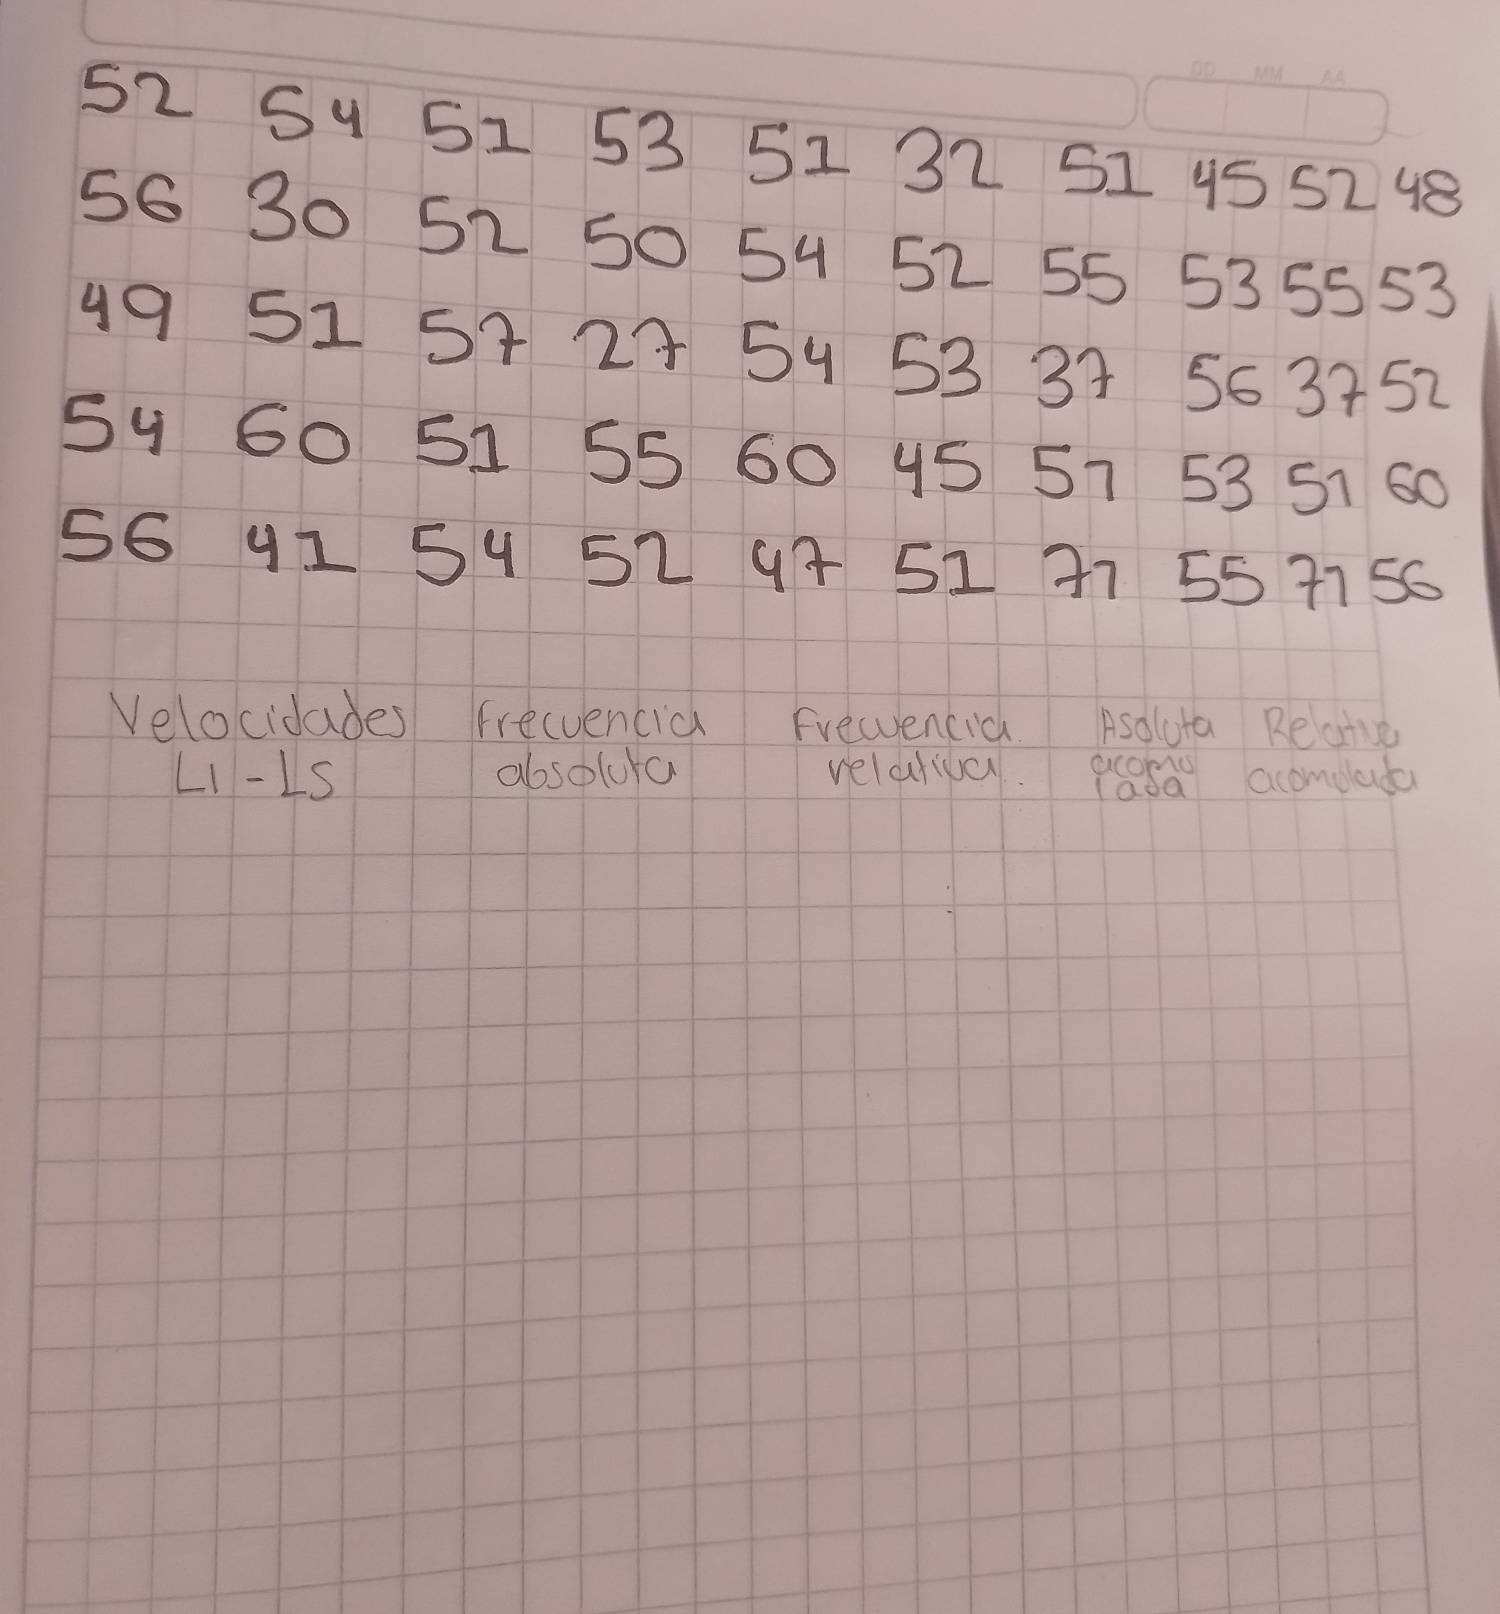 DD MM AA
52 54 51 53 51 32 51 45 52 48
56 30 52 50 54 52 55 53 55 53
49 51 57 27 54 53 37 56 37 52
54 60 51 55 60 45 57 53 51 60
56 41 54 52 47 51 71 55 71 56
Velocidades Frecuencia Frecuencia Asoluta Relative
LI-LS absoluta relativa. acomu acomulada
lada